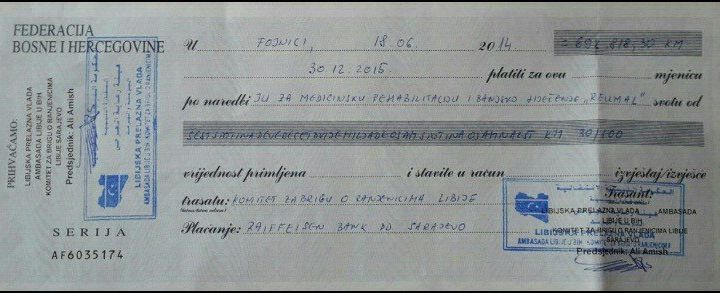 FEDERACIJA
BOSNE I HERCEGOVINE
U FOJNICI, 18.06. 2014
30.12.2015 platiti za ovu mjenicu
po naredbi JU ZA MEDICINSKU REHABILITACIJU I BANJSKO LIJEČENJE „REUMAL" svotu od
KM 30/100
vrijednost primljena i stavite u račun izvještaj/izvješće
trasatu: KOMITET ZA BRIGU O RANJENICIMA LIBIJE
Plaćanje: RAIFFEISEN BANK DD SARAJEVO
Trasant:
LIBIJSKA PRELAZNA VLADA AMBASADA
LIBIJE U BIH
KOMITET ZA BRIGU O RANJENICIMA LIBIJE
SARAJEVO
Predsjednik: Ali Amish
LIBIJSKA PRELAZNA VLADA
AMBASADA LIBIJE U BIH - KOMITET ZA BRIGU O RANJENICIMA
PRIHVAĆAMO:
LIBIJSKA PRELAZNA VLADA
AMBASADA LIBIJE U BIH
KOMITET ZA BRIGU O RANJENICIMA
LIBIJE SARAJEVO
Predsjednik: Ali Amish
LIBIJSKA PRELAZNA VLADA
SERIJA
AF6035174